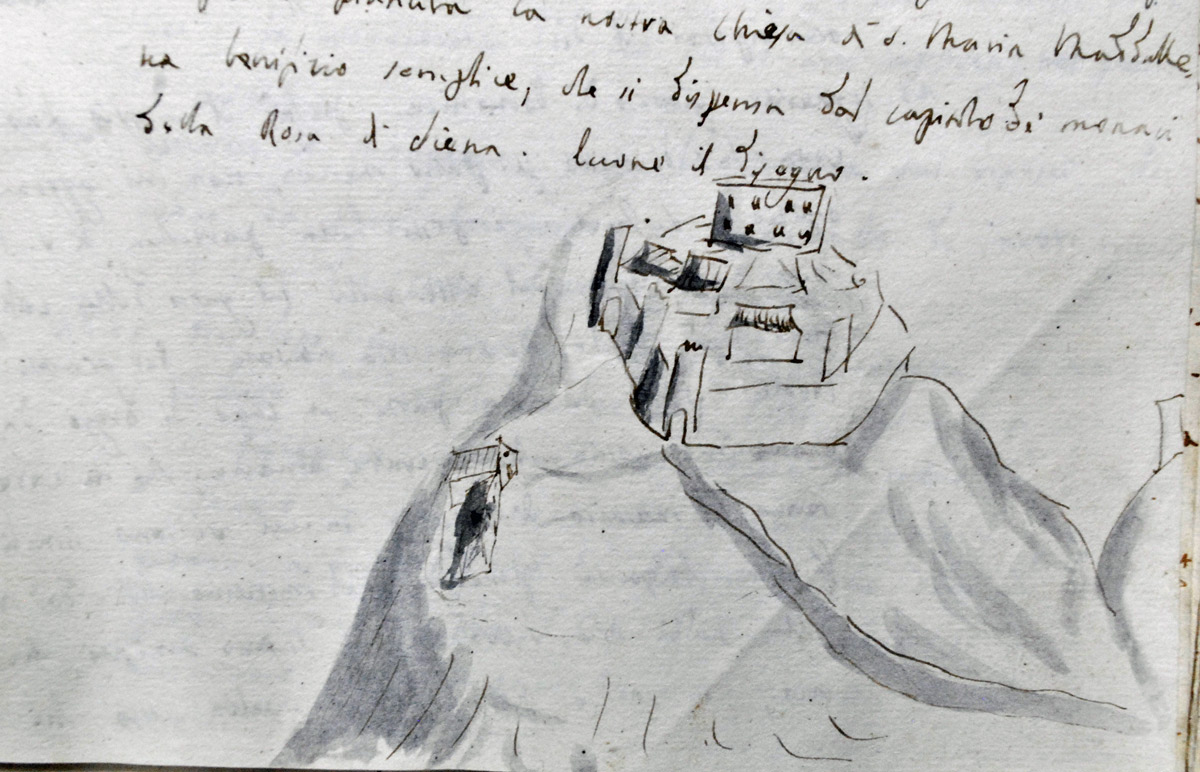 pianura la nostra Chiesa di S. Maria Maddale,
na benifizio semplice, che si dispensa dal capitolo di monaci
della Rosa di Siena. Eccone il disegno.